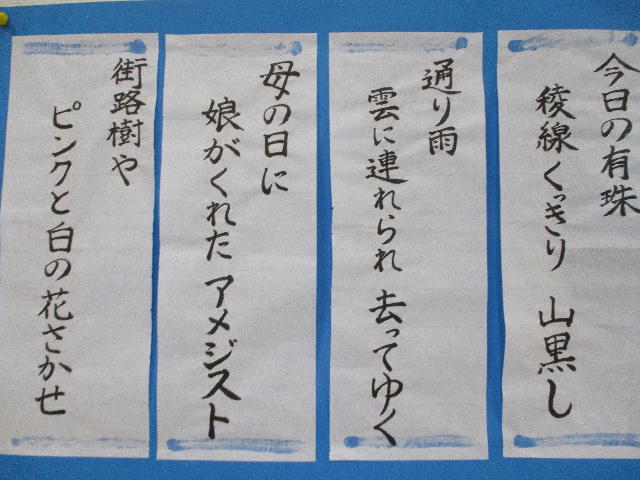 今日の有珠
稜線くっきり 山黒し
通り雨
雲に連れられ 去ってゆく
母の日に
娘がくれた アメジスト
街路樹や
ピンクと白の花さかせ